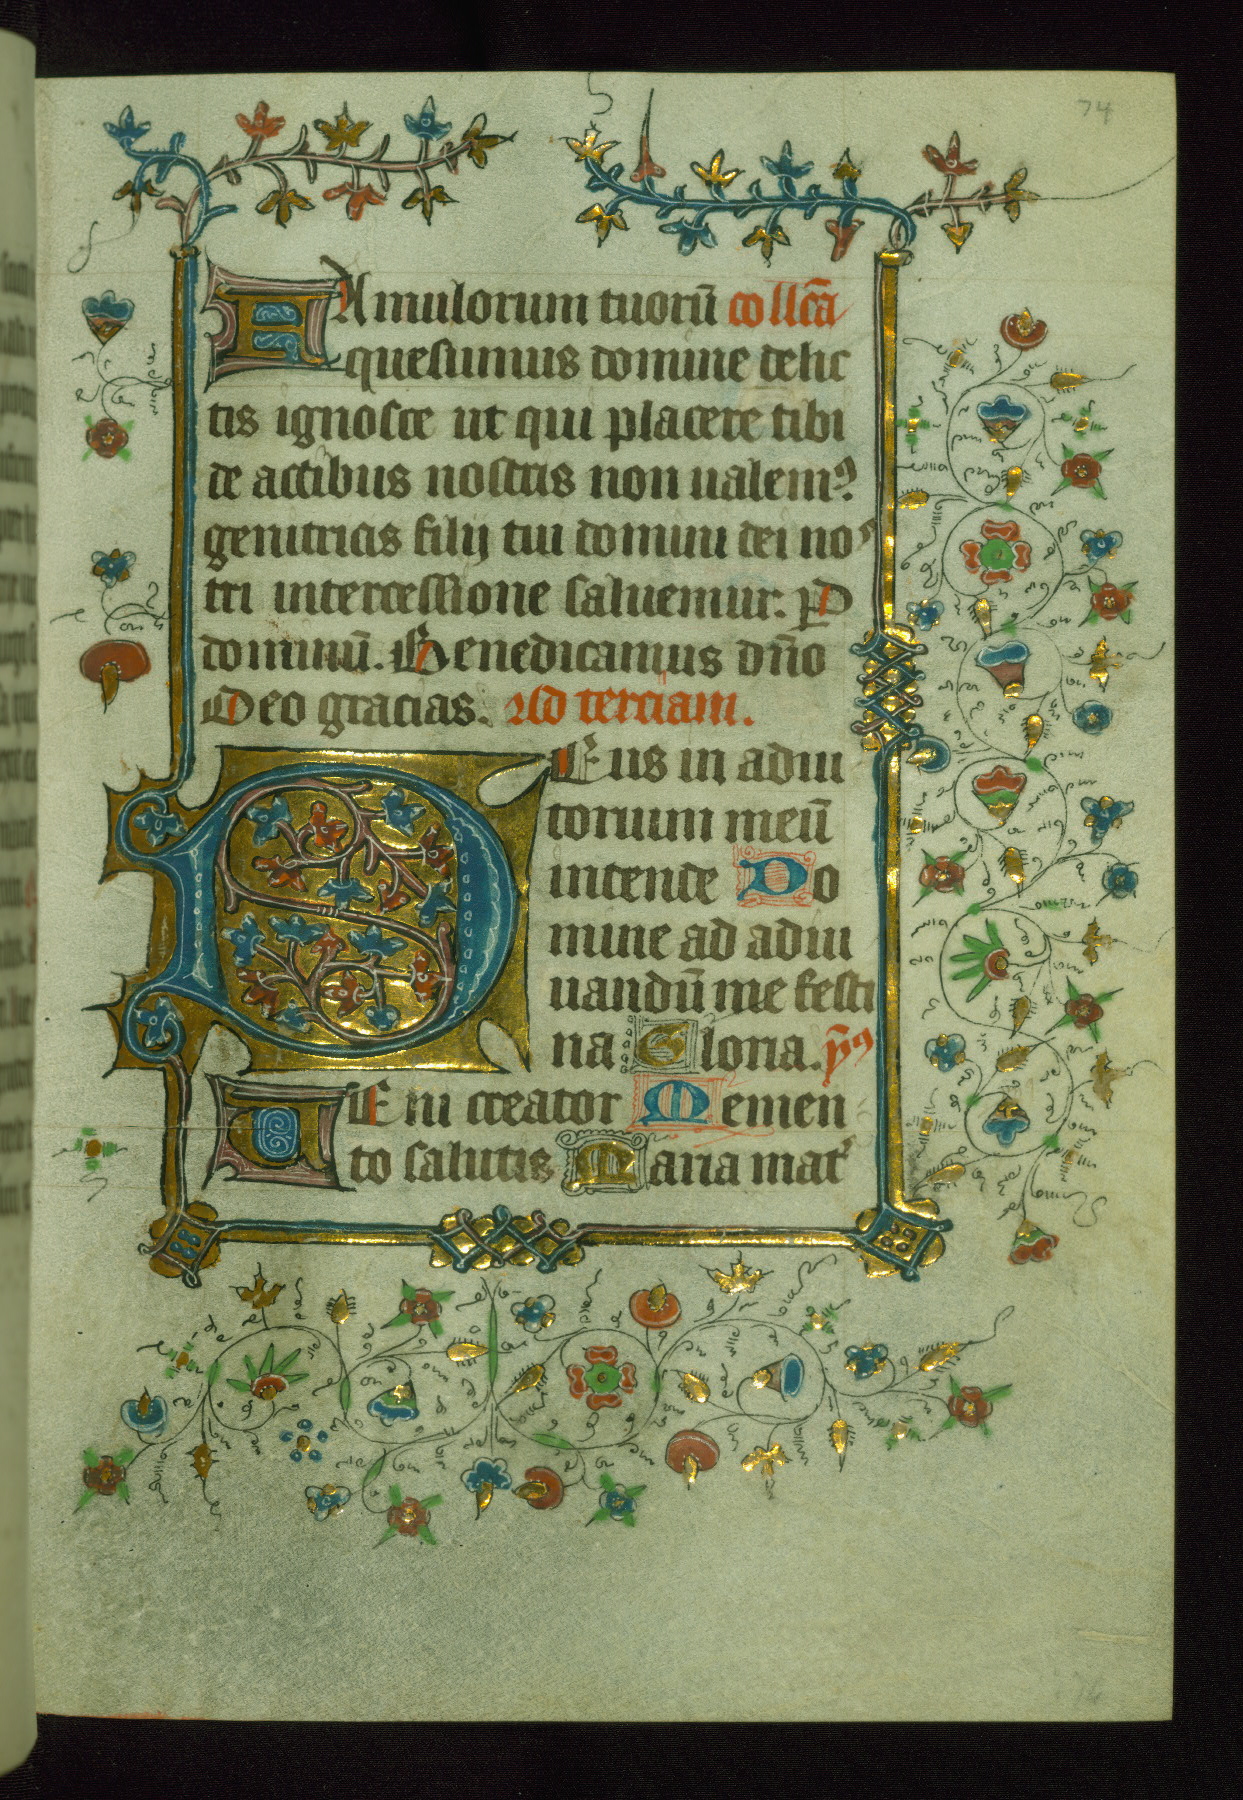 74
FAmulorum tuorū collcā
quesumus domine delic
tis ignosce ut qui placere tibi
de actibus nostris non ualemꝰ
genitricis filij tui domini dei nos
tri intercessione saluemur. P
dominū. Benedicamus dño
Deo gracias. Ad terciam.
DEus in adiu
torium meū
intende Do
mine ad adiu
uandū me festi
na Gloria. p̄ꝰ
UEni creator Memen
to salutis Maria mat᷑